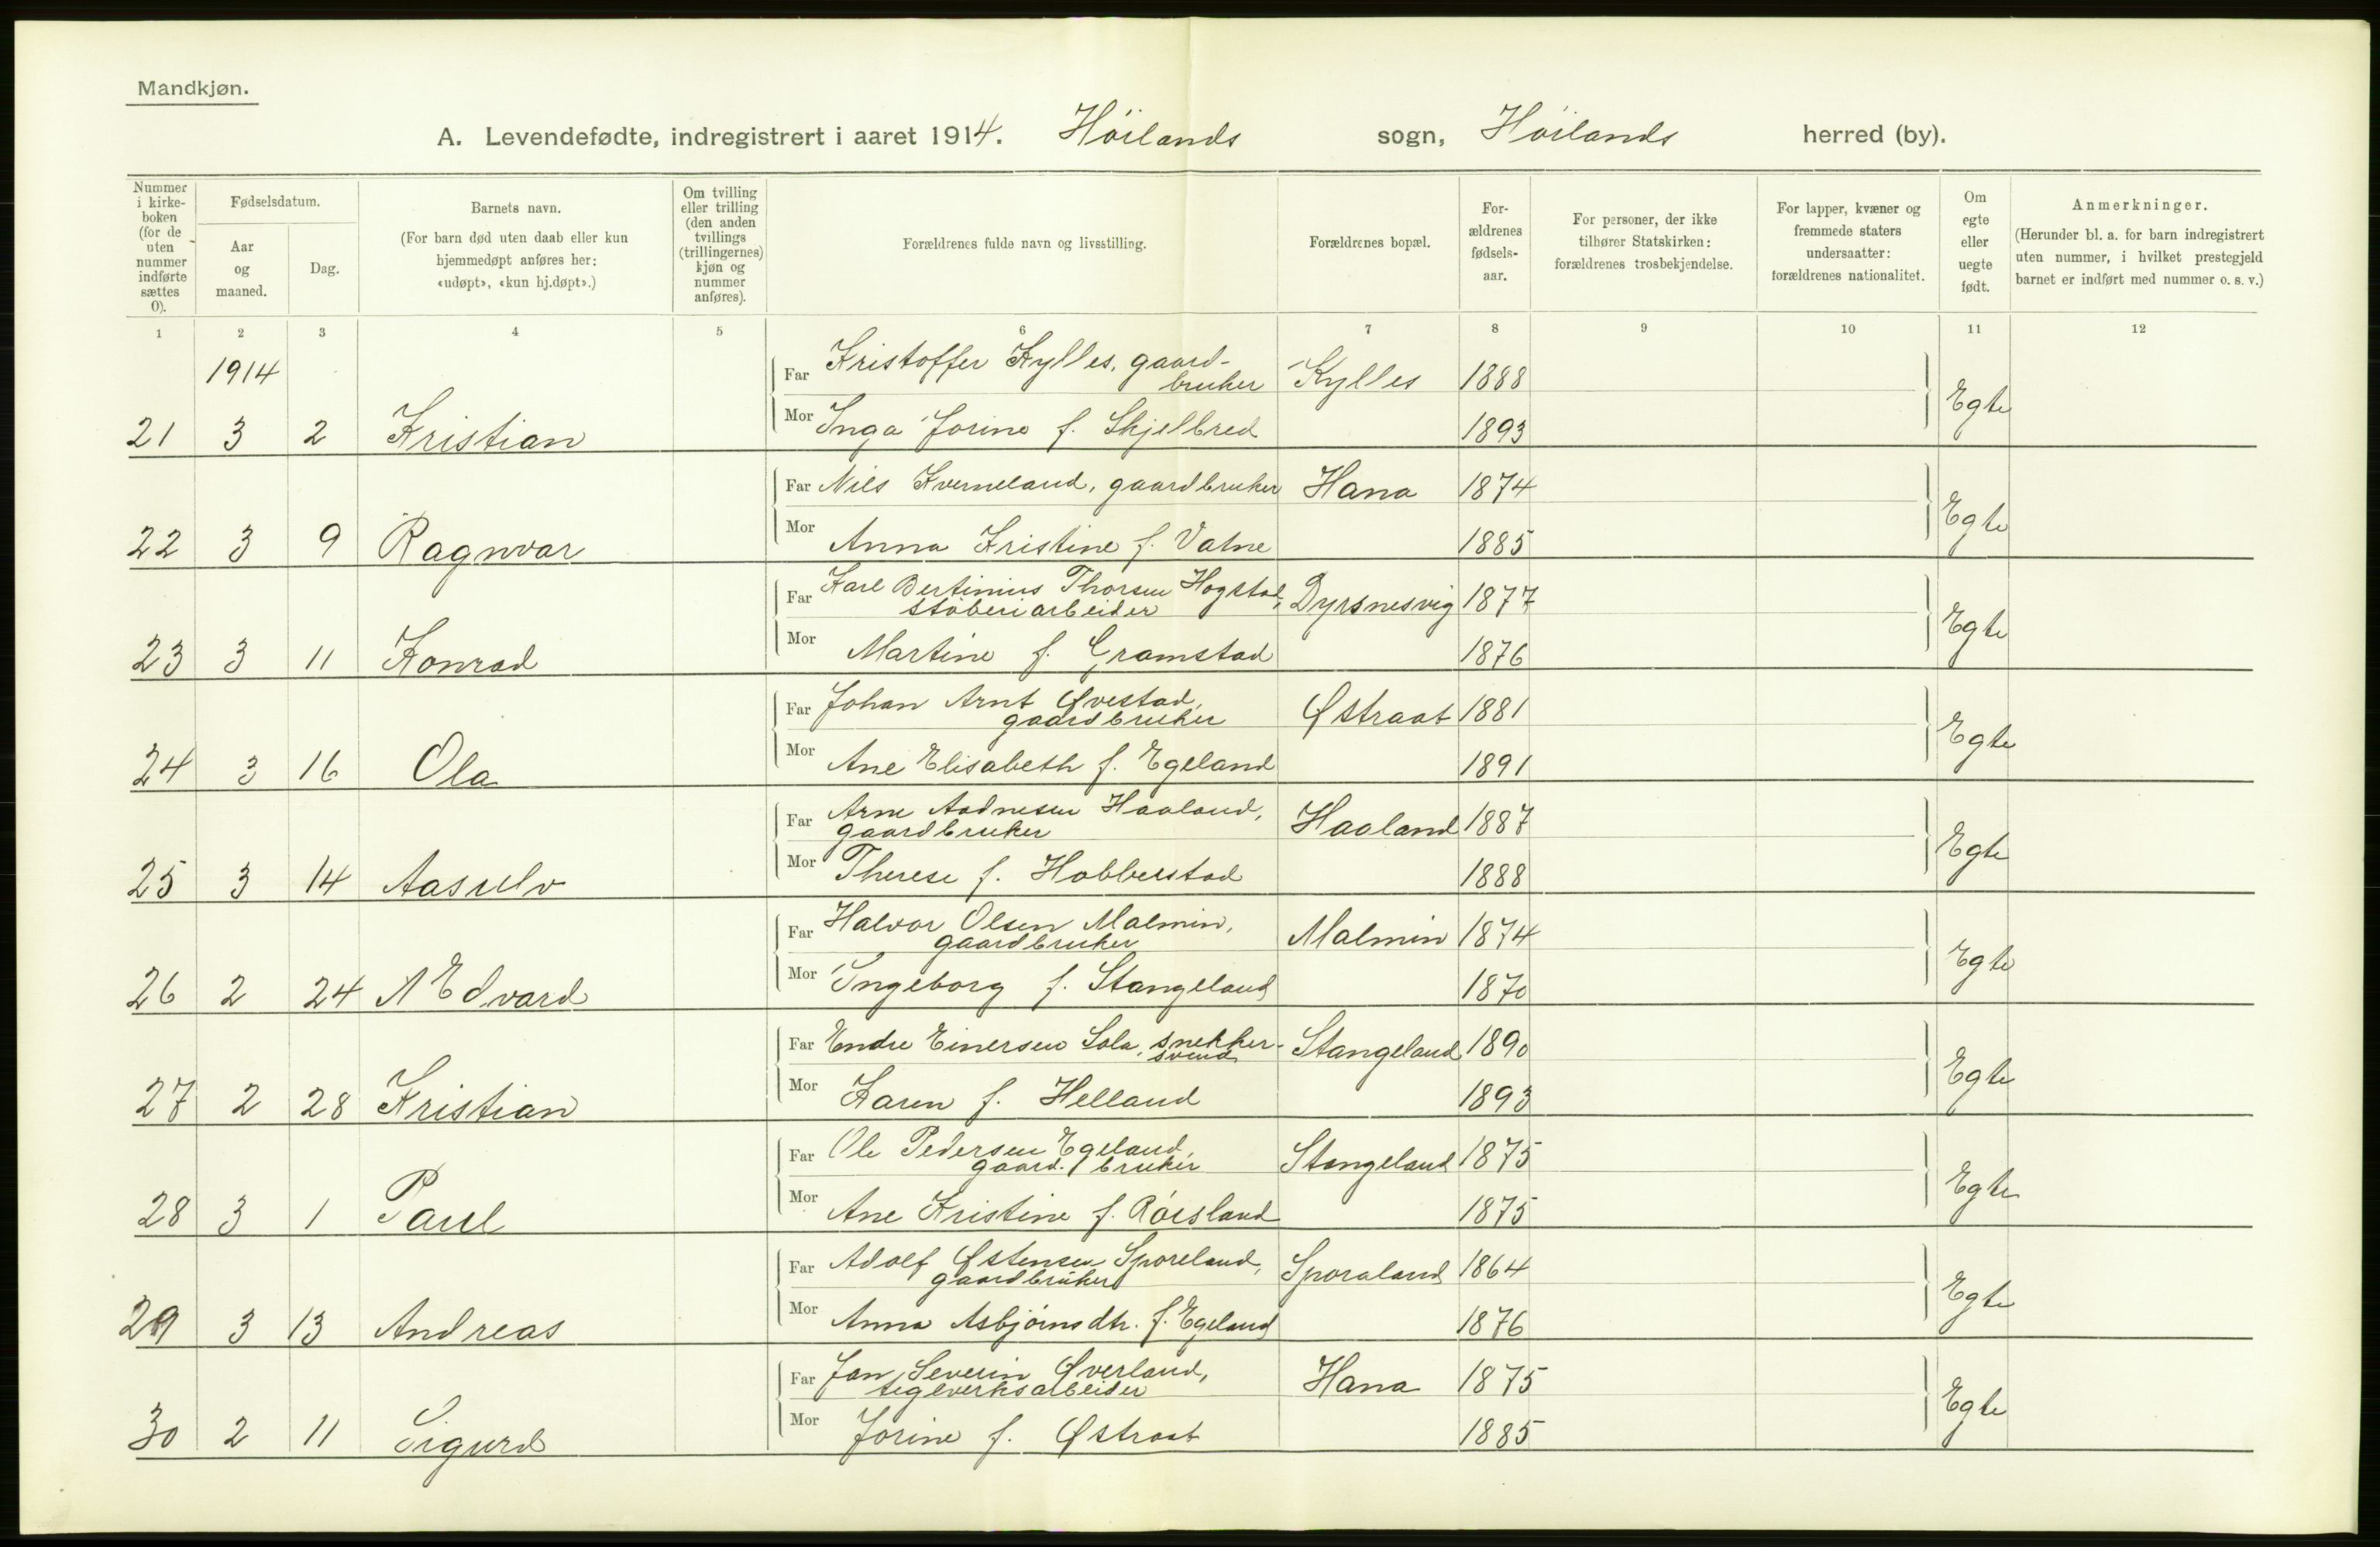 Mandkjøn.
A. Levendefødte, indregistrert i aaret 1914. Höilands sogn, Höilands herred (by).
Nummer i kirke-boken (for de uten nummer indførte sættes 0).
Fødselsdatum.
Aar og maaned.
Dag.
Barnets navn.
(For barn død uten daab eller kun hjemmedøpt anføres her: «udøpt», «kun hj.døpt».)
Om tvilling eller trilling (den anden tvillings (trillingernes) kjøn og nummer anføres).
Forældrenes fulde navn og livsstilling.
Forældrenes bopæl.
For-ældrenes fødsels-aar.
For personer, der ikke tilhører Statskirken: forældrenes trosbekjendelse.
For lapper, kvæner og fremmede staters undersaatter: forældrenes nationalitet.
Om egte eller uegte født.
Anmerkninger.
(Herunder bl. a. for barn indregistrert uten nummer, i hvilket prestegjeld barnet er indført med nummer o. s. v.)
1 2 3 4 5 6 7 8 9 10 11 12
1914
Far Kristoffer Kylles, gaard-
bruker Kylles 1888
21 3 2 Kristian Mor Inga Jorine f. Skjelbred 1893 Egte
Far Nils Kverneland, gaardbruker Hana 1874
22 3 9 Ragnvar Mor Anna Kristine f. Vatne 1885 Egte
Far Karl Bertinius Thorsen Hogstad,
stöberiarbeider Dyrsnesvig 1877
23 3 11 Konrad Mor Martine f. Gramstad 1876 Egte
Far Johan Arnt Øvestad,
gaardbruker Østraat 1881
24 3 16 Ola Mor Ane Elisabeth f. Egeland 1891 Egte
Far Arne Aadnesen Haaland,
gaardbruker Haaland 1887
25 3 14 Aasulv Mor Therese f. Hobberstad 1888 Egte
Far Halvor Olsen Malmin,
gaardbruker Malmin 1874
26 2 24 Edvard Mor Ingeborg f. Stangeland 1870 Egte
Far Endre Einersen Sola, snekker-
svend Stangeland 1890
27 2 28 Kristian Mor Karen f. Helland 1893 Egte
Far Ole Pedersen Egeland,
gaard. bruker Stangeland 1875
28 3 1 Paul Mor Ane Kristine f. Röisland 1875 Egte
Far Adolf Østensen Sporeland,
gaardbruker Sporaland 1864
29 3 13 Andreas Mor Anna Asbjörnsdtr. f. Egeland 1876 Egte
Far Jan Severin Øverland,
teglverksarbeider Hana 1875
30 2 11 Sigurd Mor Jorine f. Østraat 1885 Egte